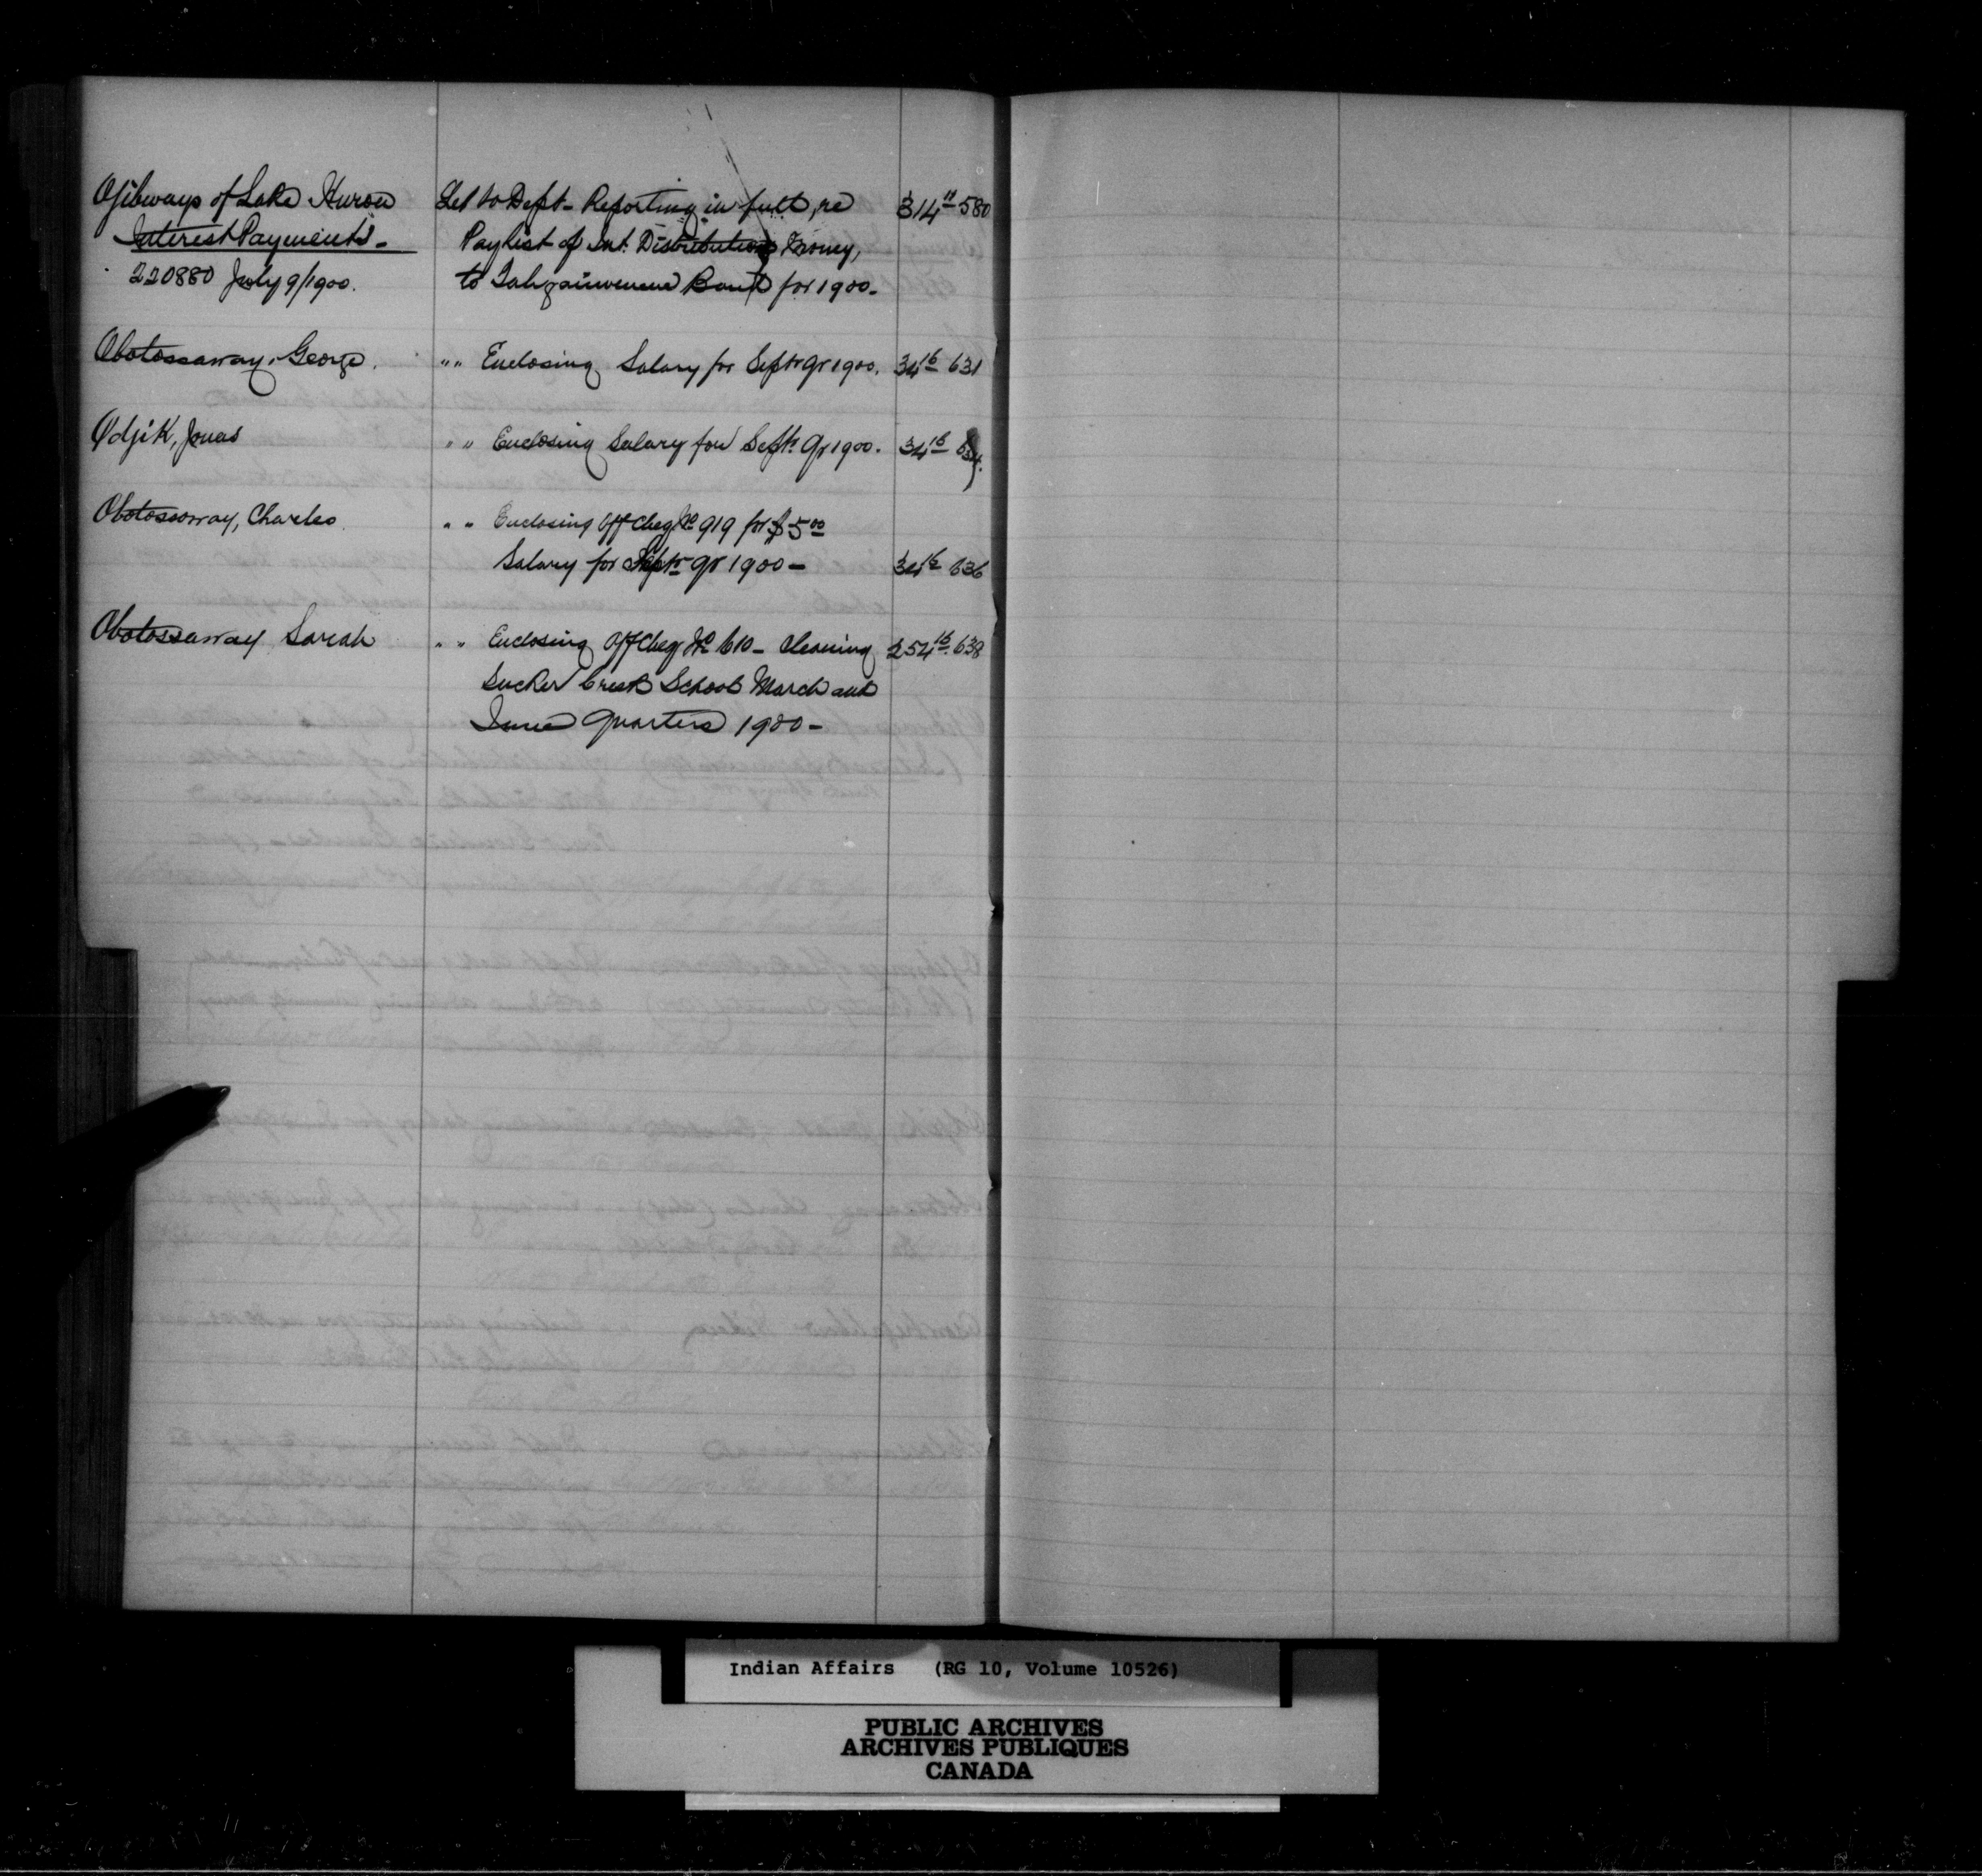 Ojibways of Lake Huron
Interest Payments -
220880 July 9/1900.
Let to Dept - Reporting in full, re
Paylist of Int. Distribution Money,
to Tahgaiwenene Band for 1900 -
314 11 580
Obotossaway, George.
" " Enclosing Salary for Septr qr 1900.
34 16 631
Odjik, Jonas
" " Enclosing Salary for Septr Qr 1900.
34 16
Obotossoway, Charles
" " Enclosing Off Cheq No 919 for $5.00
Salary for Septr qr 1900 -
34 16 636
Obotossaway Sarah
" " Enclosing Off Cheq No 610 - Cleaning
Sucker Creek School March and
June Quarters 1900 -
254 16 638
Indian Affairs (RG 10, Volume 10526)
PUBLIC ARCHIVES
ARCHIVES PUBLIQUES
CANADA